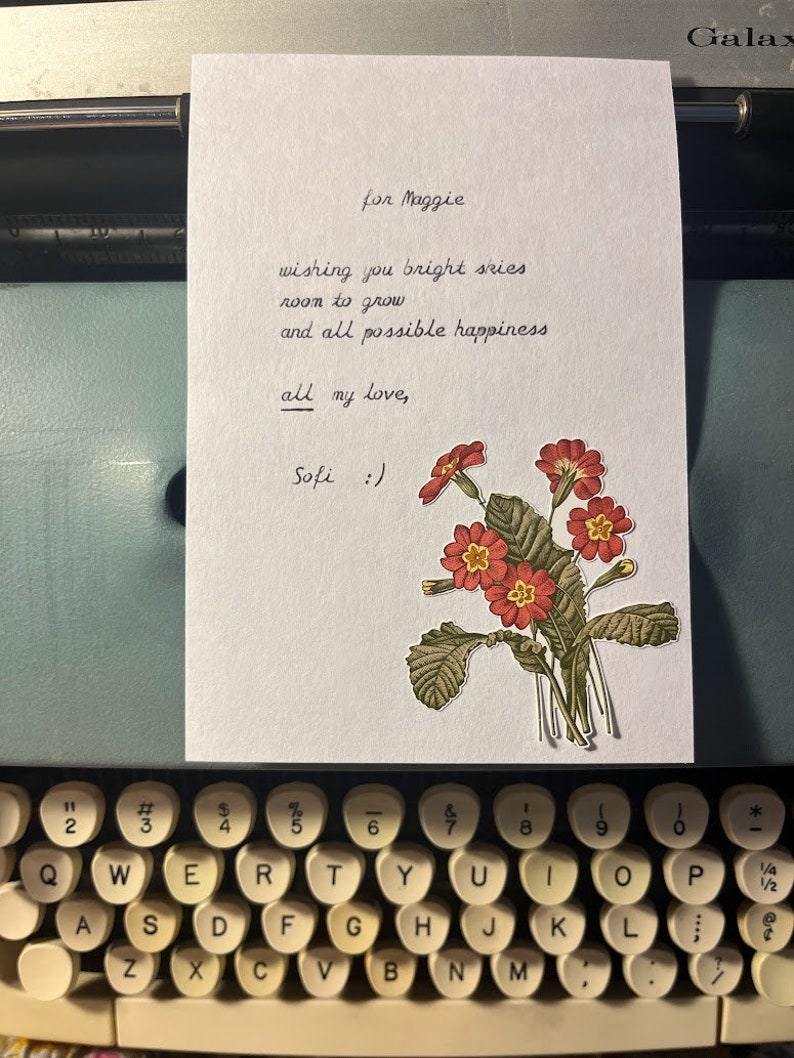 Galax
0 10
for Maggie
wishing you bright skies
room to grow
and all possible happiness
all my love,
Sofi :)
" # $ % _ & ' ( ) *
2 3 4 5 6 7 8 9 0 -
Q W E R T Y U I O P ¼ ½
A S D F G H J K L : ; @ ¢
Z X C V B N M , . ? /